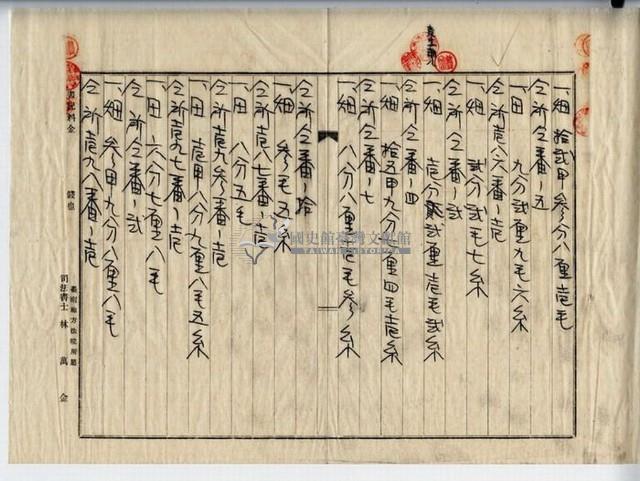 一畑 拾貳甲參分八厘壱毛
仝所仝番ノ五
一田 九分貳厘九毛六糸
仝所壱八六番ノ壱
一畑 貳分貳毛七糸
仝所仝番ノ貳
一畑 壱分貳厘壱毛貳糸
仝所仝番ノ四
一畑 拾五甲九分 厘四毛壱糸
仝所仝番ノ七
一畑 八分八厘壱毛參糸
仝所仝番ノ拾
一畑 參毛五糸
仝所壱八七番ノ壱
一田 八分五毛
仝所壱九參番ノ壱
一田 壱甲八分九厘八毛五糸
仝所壱九七番ノ壱
一田 六分七厘八毛
仝所仝番ノ貳
一畑 參甲九分八厘八毛
仝所壱九八番ノ壱
書記料金 錢也
地方法院所屬
司法書士 林萬金
國史館臺灣文獻館
TAIWAN HISTORICA